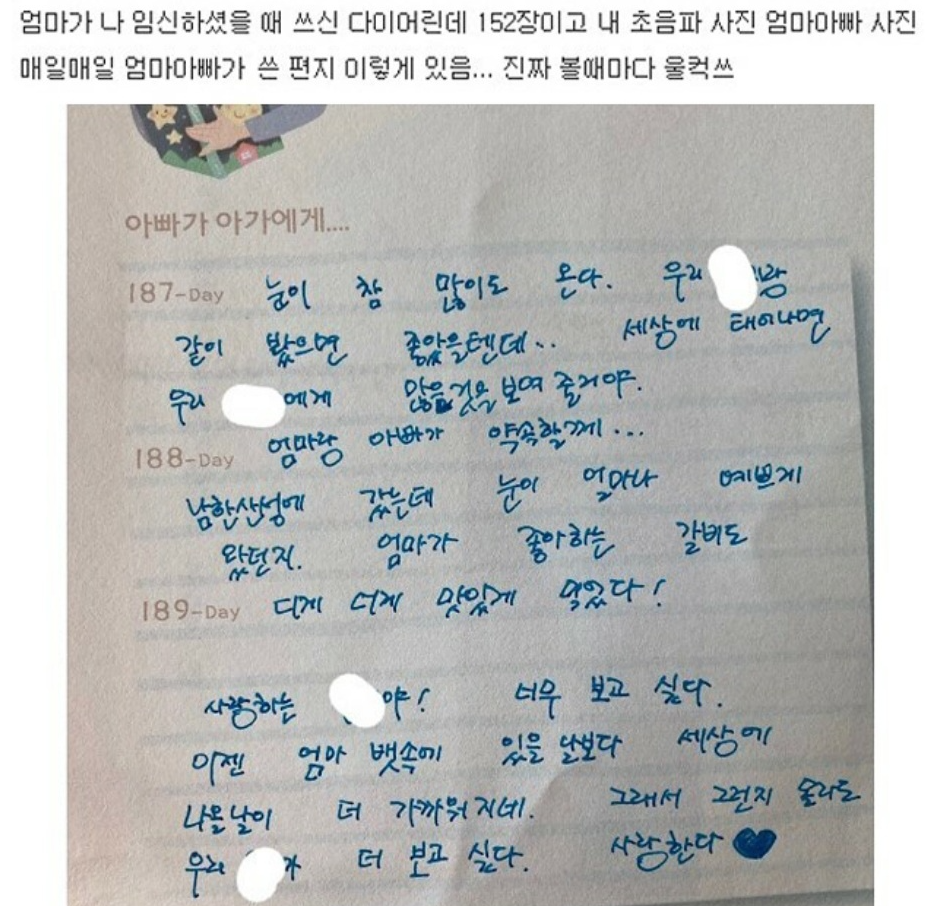 엄마가 나 임신하셨을 때 쓰신 다이어린데 152장이고 내 초음파 사진 엄마아빠 사진
매일매일 엄마아빠가 쓴 편지 이렇게 있음... 진짜 볼때마다 울컥쓰
아빠가 아가에게....
187-Day 눈이 참 많이도 온다. 우리 랑
같이 봤으면 좋았을텐데.. 세상에 태어나면
우리 에게 많을것을 보여 줄거야.
188-Day 엄마랑 아빠가 약속할께...
남한산성에 갔는데 눈이 얼마나 예쁘게
왔던지. 엄마가 좋아하는 갈비도
189-Day 디게 디게 맛있게 먹었다!
사랑하는 야! 너무 보고 싶다.
이젠 엄마 뱃속에 있을 날보다 세상에
나올날이 더 가까워지네. 그래서 그런지 몰라도
우리 가 더 보고 싶다. 사랑한다 ♥